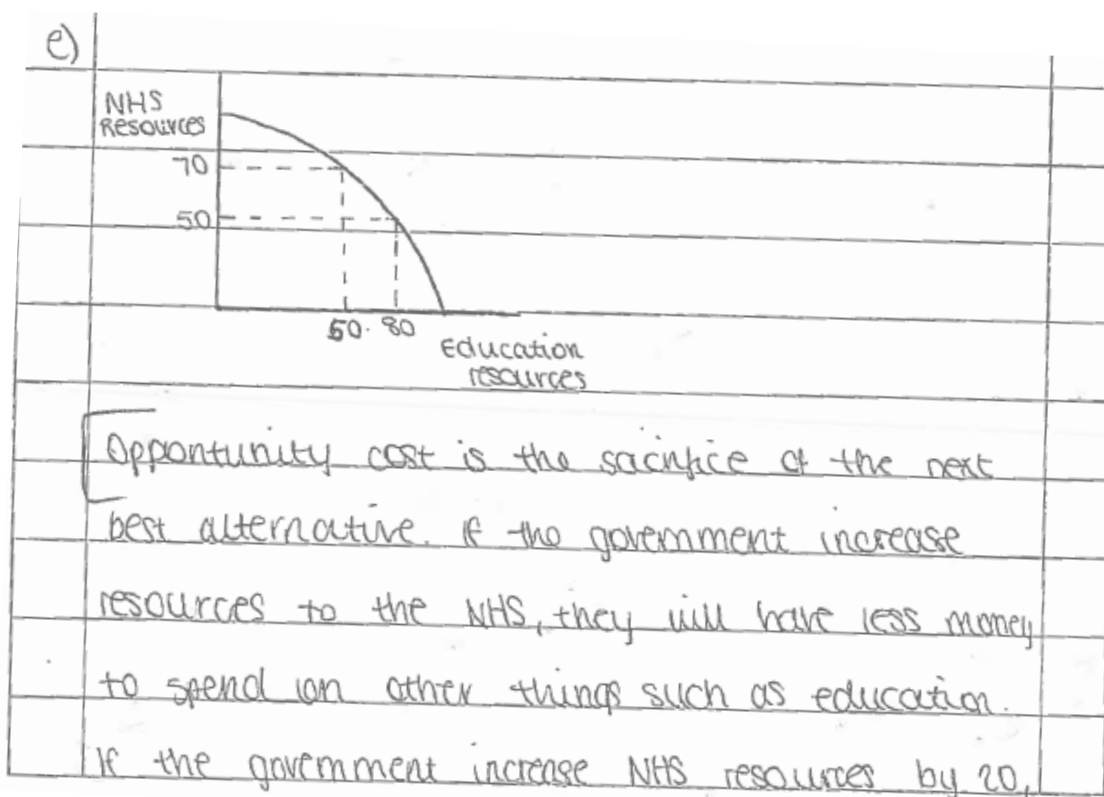 e)
NHS
Resources
70
50
60. 80
Education
resources
Opportunity cost is the sacrifice of the next
best alternative. If the government increase
resources to the NHS, they will have less money
to spend on other things such as education.
If the government increase NHS resources by 20,